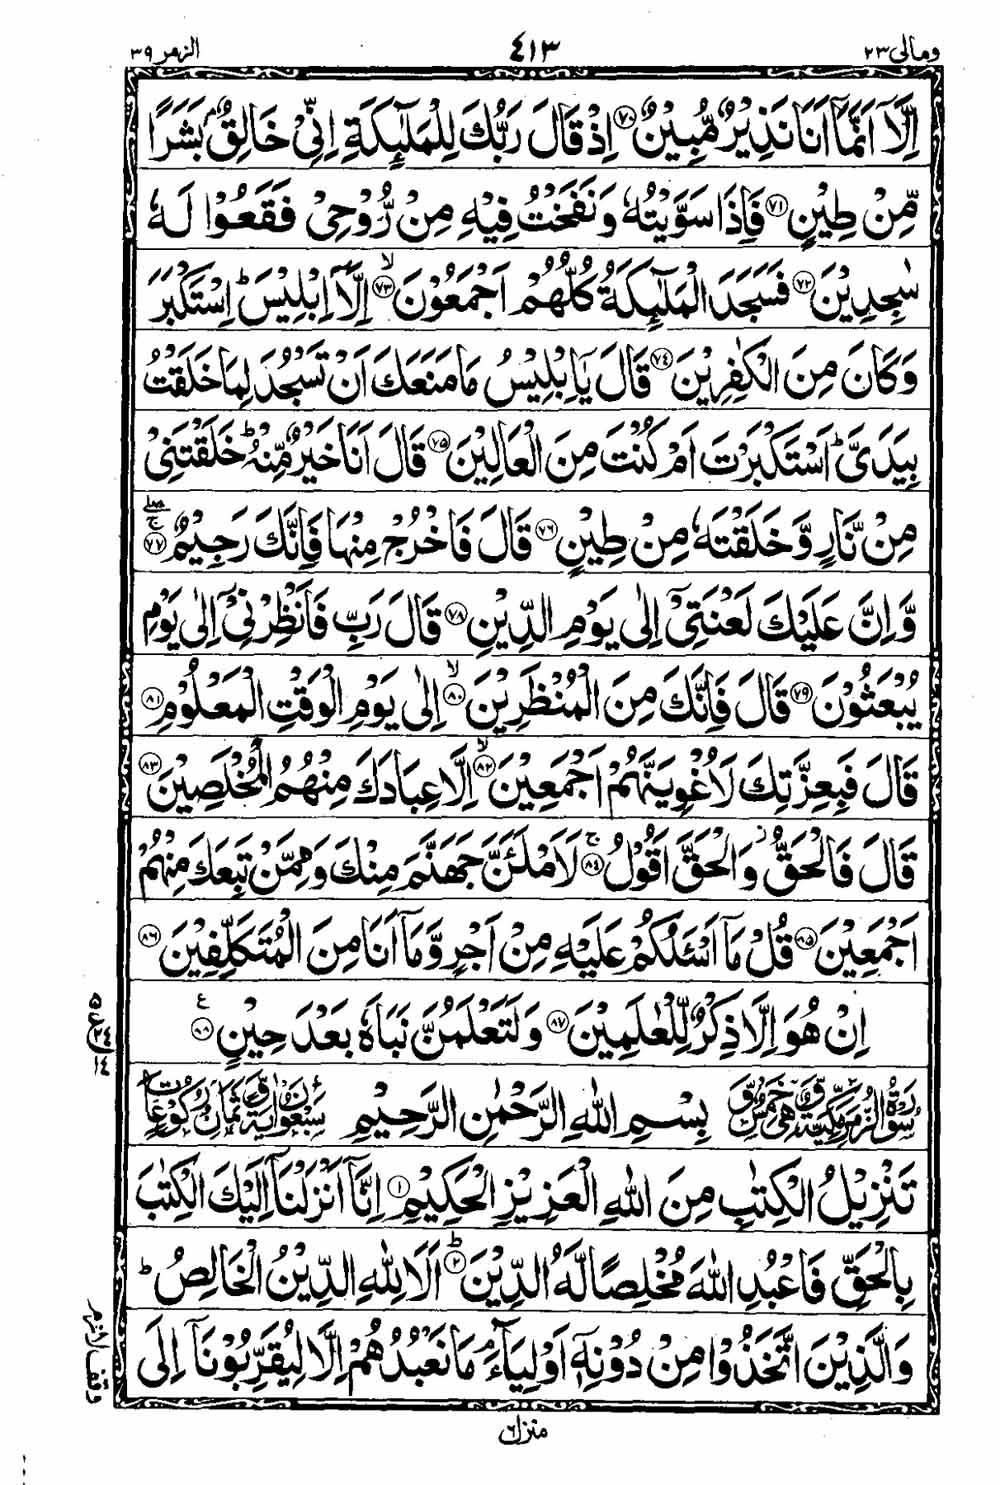 ومالی ٢٣ ٤١٣ الزمر ٣٩
اِلَّاۤ اَنَّمَاۤ اَنَا نَذِیْرٌ مُّبِیْنٌ ﴿٧٠﴾ اِذْ قَالَ رَبُّكَ لِلْمَلٰٓىِٕكَةِ اِنِّیْ خَالِقٌۢ بَشَرًا
مِّنْ طِیْنٍ ﴿٧١﴾ فَاِذَا سَوَّیْتُهٗ وَ نَفَخْتُ فِیْهِ مِنْ رُّوْحِیْ فَقَعُوْا لَهٗ
سٰجِدِیْنَ ﴿٧٢﴾ فَسَجَدَ الْمَلٰٓىِٕكَةُ كُلُّهُمْ اَجْمَعُوْنَ ﴿٧٣﴾ۙ اِلَّاۤ اِبْلِیْسَ ؕ اِسْتَكْبَرَ
وَ كَانَ مِنَ الْكٰفِرِیْنَ ﴿٧٤﴾ قَالَ یَاۤ اِبْلِیْسُ مَا مَنَعَكَ اَنْ تَسْجُدَ لِمَا خَلَقْتُ
بِیَدَیَّ ؕ اَسْتَكْبَرْتَ اَمْ كُنْتَ مِنَ الْعَالِیْنَ ﴿٧٥﴾ قَالَ اَنَا خَیْرٌ مِّنْهُ ؕ خَلَقْتَنِیْ
مِنْ نَّارٍ وَّ خَلَقْتَهٗ مِنْ طِیْنٍ ﴿٧٦﴾ قَالَ فَاخْرُجْ مِنْهَا فَاِنَّكَ رَجِیْمٌ ﴿٧٧﴾ۖۚ
وَّ اِنَّ عَلَیْكَ لَعْنَتِیْۤ اِلٰى یَوْمِ الدِّیْنِ ﴿٧٨﴾ قَالَ رَبِّ فَاَنْظِرْنِیْۤ اِلٰى یَوْمِ
یُبْعَثُوْنَ ﴿٧٩﴾ قَالَ فَاِنَّكَ مِنَ الْمُنْظَرِیْنَ ﴿٨٠﴾ۙ اِلٰى یَوْمِ الْوَقْتِ الْمَعْلُوْمِ ﴿٨١﴾
قَالَ فَبِعِزَّتِكَ لَاُغْوِیَنَّهُمْ اَجْمَعِیْنَ ﴿٨٢﴾ۙ اِلَّا عِبَادَكَ مِنْهُمُ الْمُخْلَصِیْنَ ﴿٨٣﴾
قَالَ فَالْحَقُّ ؗ وَ الْحَقَّ اَقُوْلُ ﴿٨٤﴾ۚ لَاَمْلَـَٔنَّ جَهَنَّمَ مِنْكَ وَ مِمَّنْ تَبِعَكَ مِنْهُمْ
اَجْمَعِیْنَ ﴿٨٥﴾ قُلْ مَاۤ اَسْـَٔلُكُمْ عَلَیْهِ مِنْ اَجْرٍ وَّ مَاۤ اَنَا مِنَ الْمُتَكَلِّفِیْنَ ﴿٨٦﴾
اِنْ هُوَ اِلَّا ذِكْرٌ لِّلْعٰلَمِیْنَ ﴿٨٧﴾ وَ لَتَعْلَمُنَّ نَبَاَهٗ بَعْدَ حِیْنٍ ﴿٨٨﴾ ع
سُوْرَةُ الزُّمَرِ مَكِّیَّةٌ وَّ هِیَ خَمْسٌ وَّ بِسْمِ اللهِ الرَّحْمٰنِ الرَّحِیْمِ سَبْعُوْنَ اٰیَةً وَّ ثَمَانُ رُكُوْعَاتٍ
تَنْزِیْلُ الْكِتٰبِ مِنَ اللهِ الْعَزِیْزِ الْحَكِیْمِ ﴿١﴾ اِنَّاۤ اَنْزَلْنَاۤ اِلَیْكَ الْكِتٰبَ
بِالْحَقِّ فَاعْبُدِ اللهَ مُخْلِصًا لَّهُ الدِّیْنَ ﴿٢﴾ؕ اَلَا لِلّٰهِ الدِّیْنُ الْخَالِصُ ؕ
وَ الَّذِیْنَ اتَّخَذُوْا مِنْ دُوْنِهٖۤ اَوْلِیَآءَ ۘ مَا نَعْبُدُهُمْ اِلَّا لِیُقَرِّبُوْنَاۤ اِلَى
وقف لازم
منزل ٦